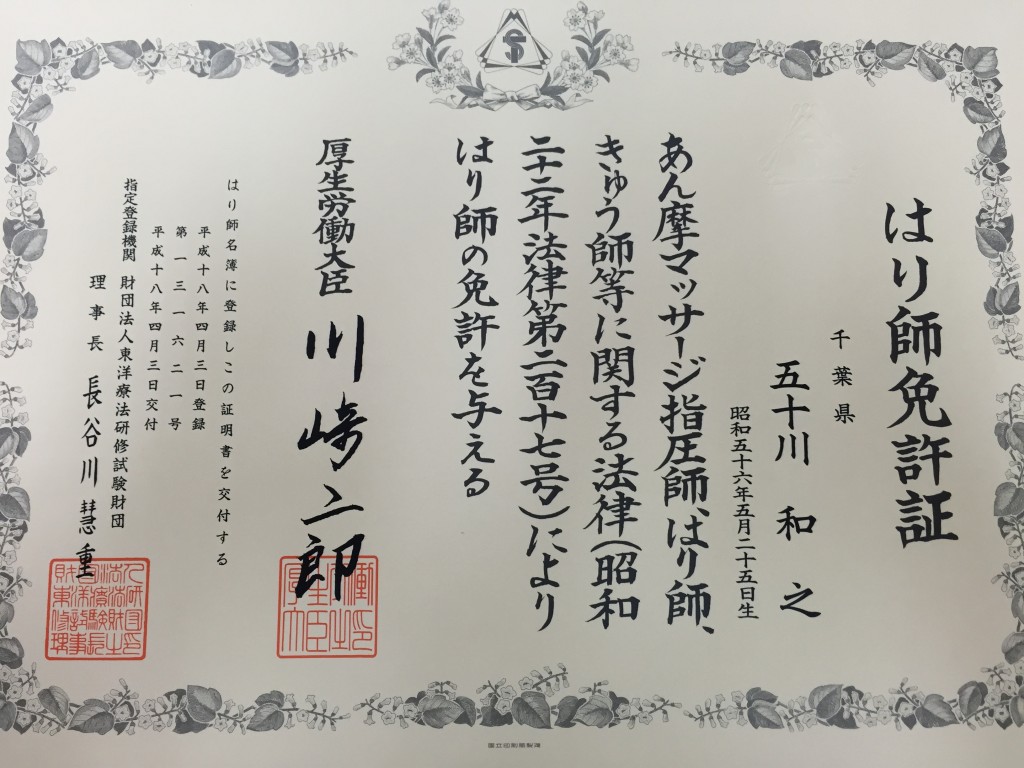 はり師免許証
千葉県
五十川和之
昭和五十六年五月二十五日生
あん摩マッサージ指圧師、はり師、
きゅう師等に関する法律(昭和
二十二年法律第二百十七号)により
はり師の免許を与える
厚生労働大臣 川崎二郎
はり師名簿に登録しこの証明書を交付する
平成十八年四月三日登録
第一三一六二一号
平成十八年四月三日交付
指定登録機関 財団法人東洋療法研修試験財団
理事長 長谷川慧重